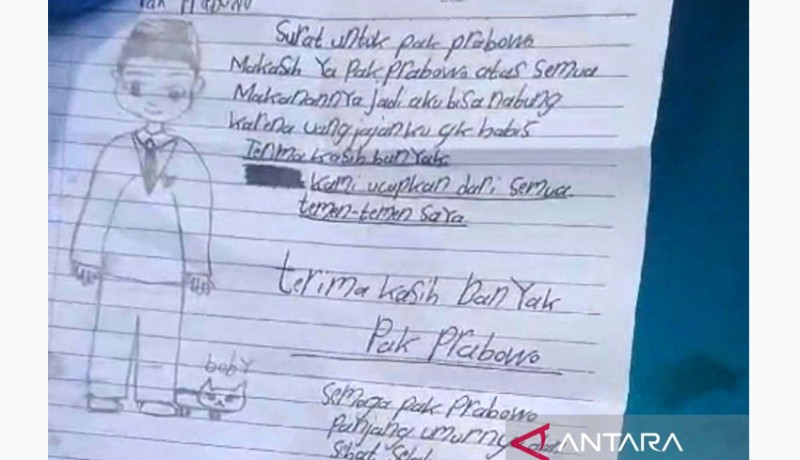 Pak Prabowo
Surat untuk pak prabowo
Makasih Ya Pak prabowo atas semua
Makanannya jadi aku bisa nabung
karena uang jajanku gk habis
Terima kasih banyak
kami ucapkan dari semua
temen-temen saya
terima kasih banyak
Pak Prabowo
bobY
Semoga pak Prabowo
panjang umurnya dan
Sehat
ANTARA